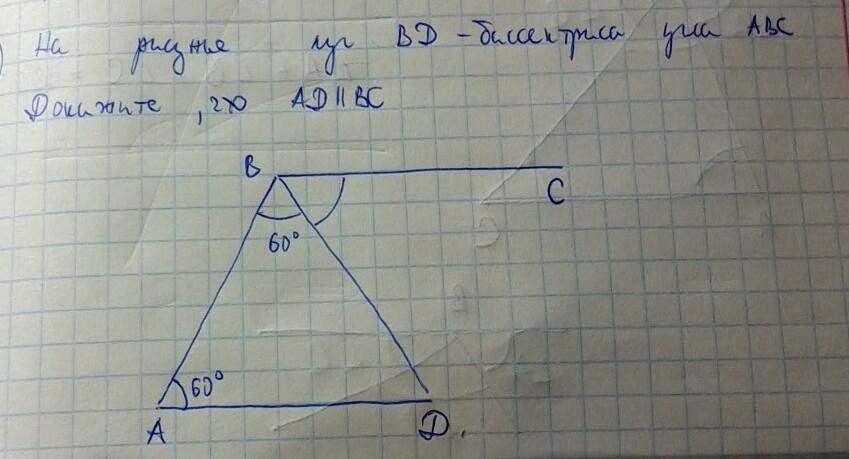 На рисунке луч BD - биссектриса угла ABC
Докажите, что AD || BC
B
C
60°
60°
A
D.